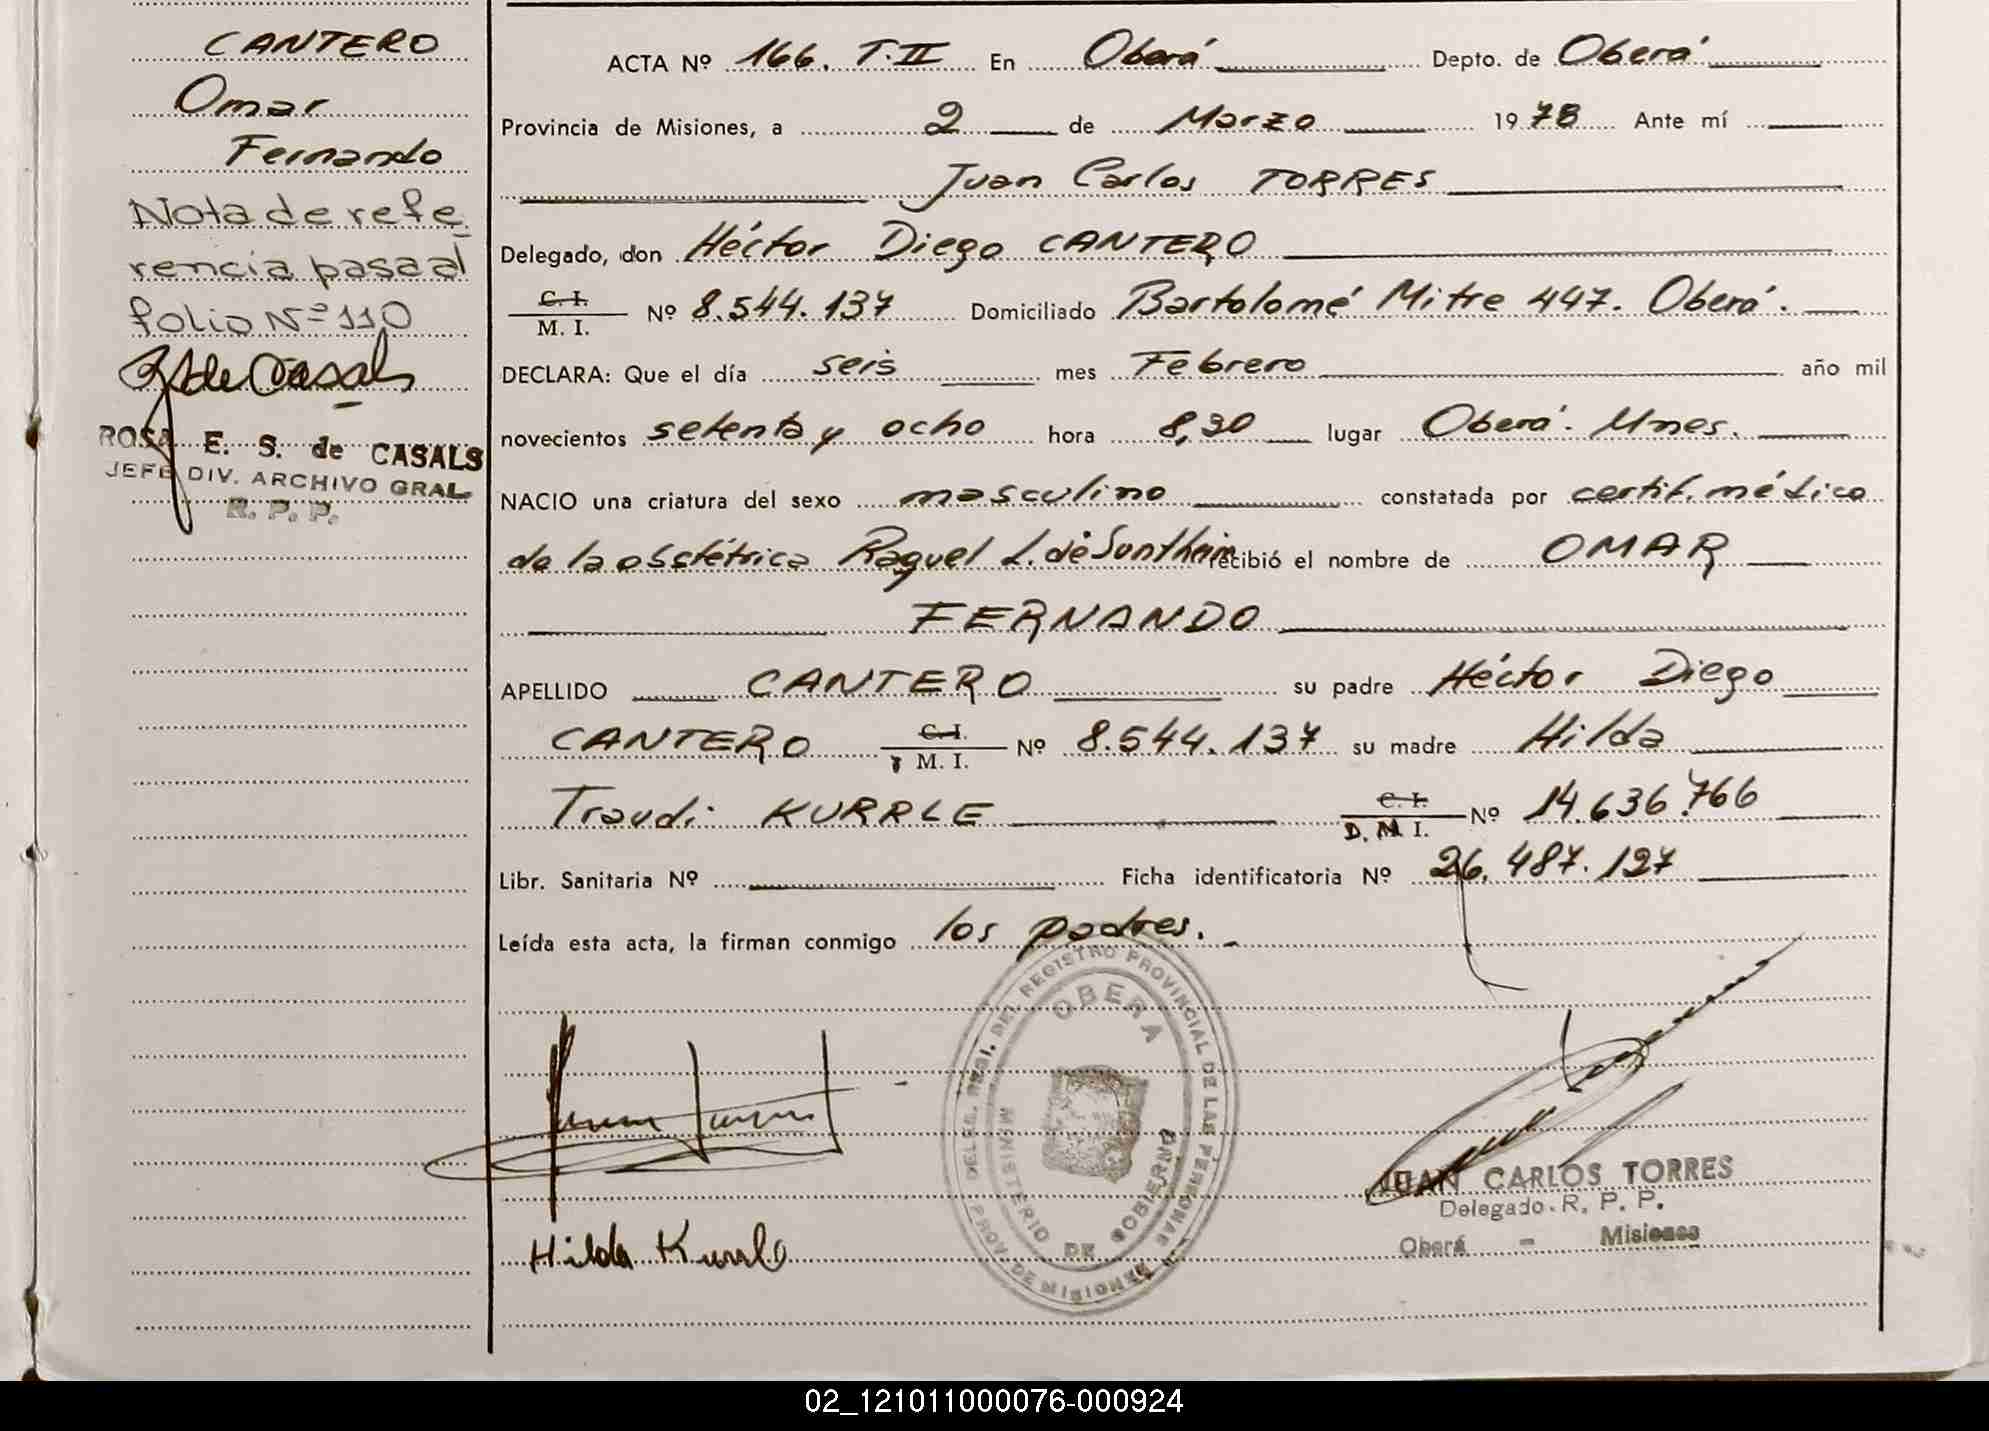 CANTERO
Omar
Fernando
Nota de refe_
rencia pasa al
folio Nº 110
ROSA E. S. de CASALS
JEFE DIV. ARCHIVO GRAL.
R. P. P.
ACTA Nº 166. T. II En Oberá Depto. de Oberá
Provincia de Misiones, a 2 de Marzo 1978 Ante mí
Juan Carlos TORRES
Delegado, don Héctor Diego CANTERO
C. I.
M. I. Nº 8.544.137 Domiciliado Bartolomé Mitre 447. Oberá.
DECLARA: Que el día seis mes Febrero año mil
novecientos setenta y ocho hora 8,30 lugar Oberá. Mnes.
NACIO una criatura del sexo masculino constatada por certif. médico
de la obstétrica Raquel L. de recibió el nombre de OMAR
FERNANDO
APELLIDO CANTERO su padre Héctor Diego
CANTERO C. I.
M. I. Nº 8.544.137 su madre Hilda
Traudi KURRLE C. I.
D. N. I. Nº 14.636.766
Libr. Sanitaria Nº Ficha identificatoria Nº 26.487.127
Leída esta acta, la firman conmigo los padres.
DELEG. REGI. DEL REGISTRO PROVINCIAL DE LAS PERSONAS
OBERA
MINISTERIO DE GOBIERNO
PROV. DE MISIONES
JUAN CARLOS TORRES
Delegado R. P. P.
Oberá - Misiones
Hilda Kurrle
02_121011000076-000924